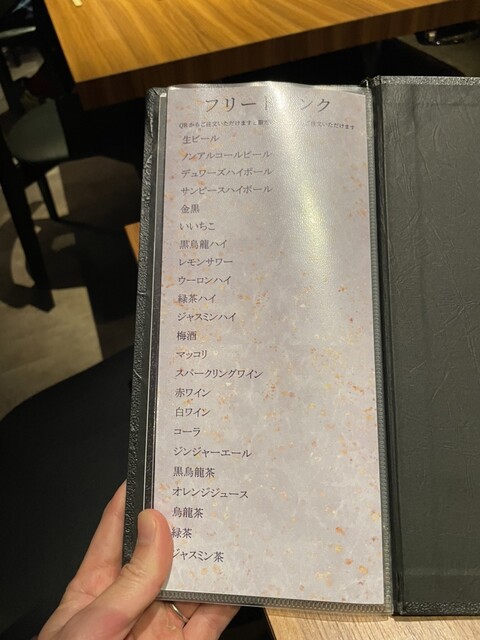 フリードリンク
QRからご注文いただけます。 ご注文いただけます
生ビール
ノンアルコールビール
デュワーズハイボール
サンピースハイボール
金黒
いいちこ
黒烏龍ハイ
レモンサワー
ウーロンハイ
緑茶ハイ
ジャスミンハイ
梅酒
マッコリ
スパークリングワイン
赤ワイン
白ワイン
コーラ
ジンジャーエール
黒烏龍茶
オレンジジュース
烏龍茶
緑茶
ジャスミン茶